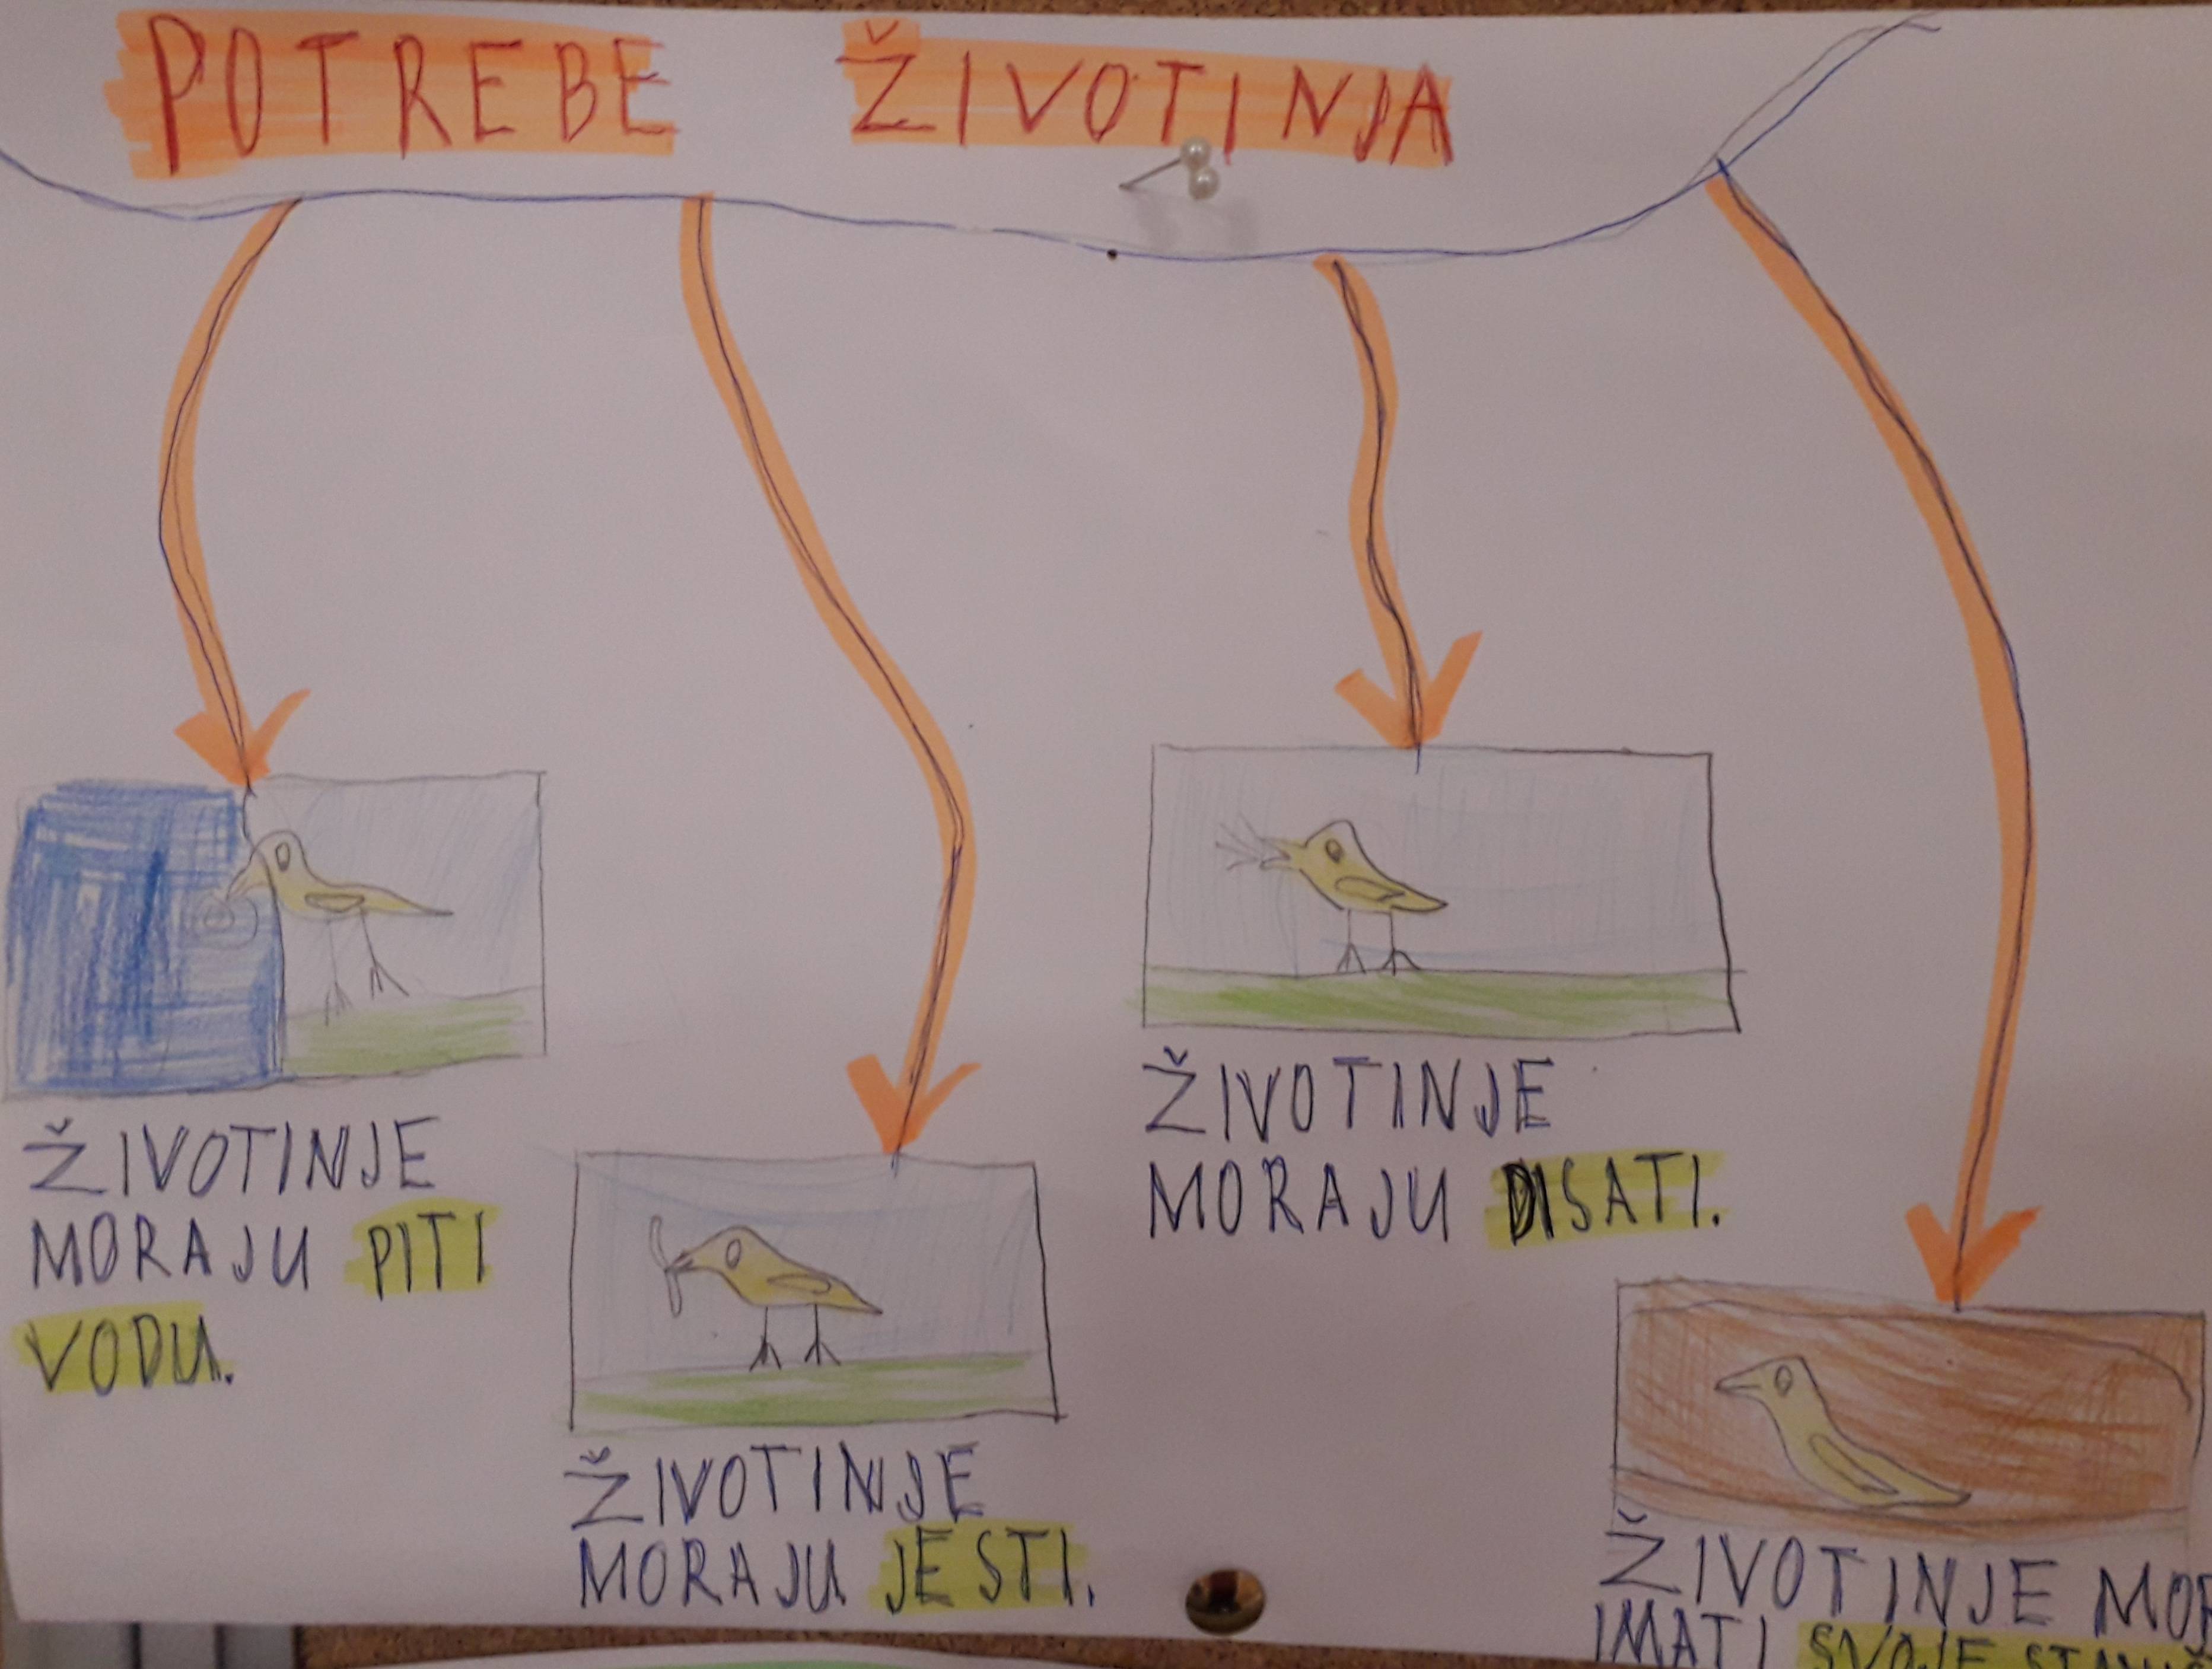 POTREBE ŽIVOTINJA
ŽIVOTINJE
MORAJU PITI
VODU.
ŽIVOTINJE
MORAJU JESTI.
ŽIVOTINJE
MORAJU DISATI.
ŽIVOTINJE
IMATI SVOJE